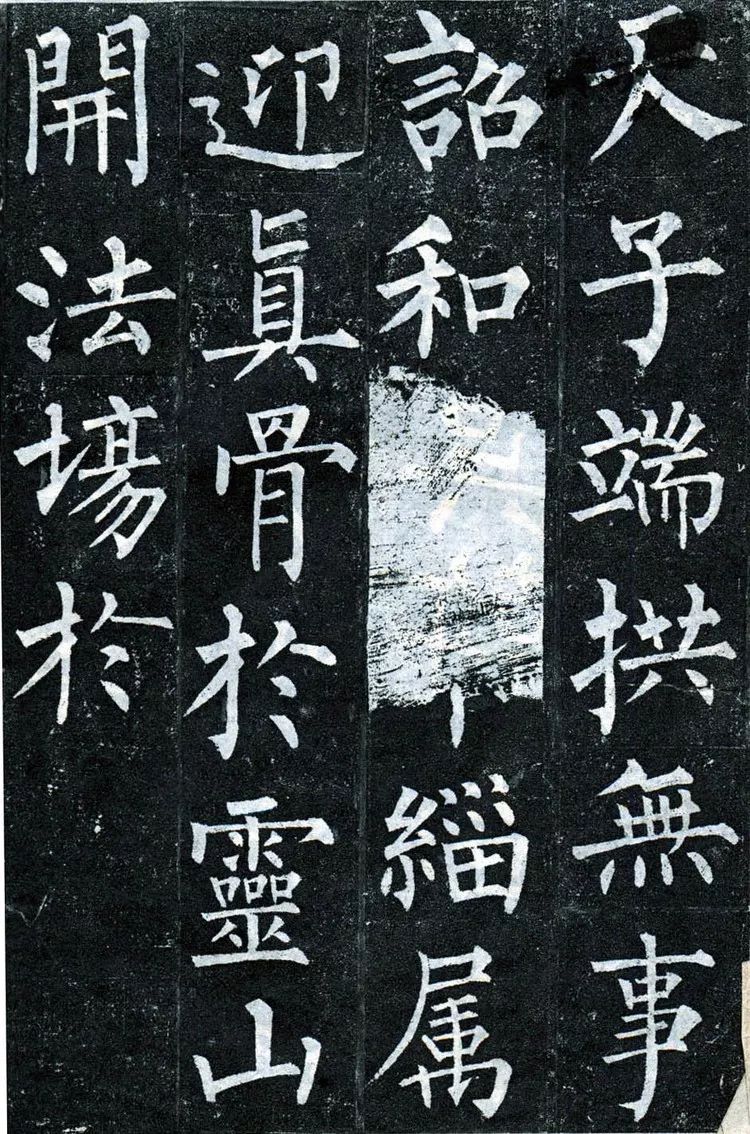 天子端拱無事
詔和緇属
迎真骨於靈山
開法場於